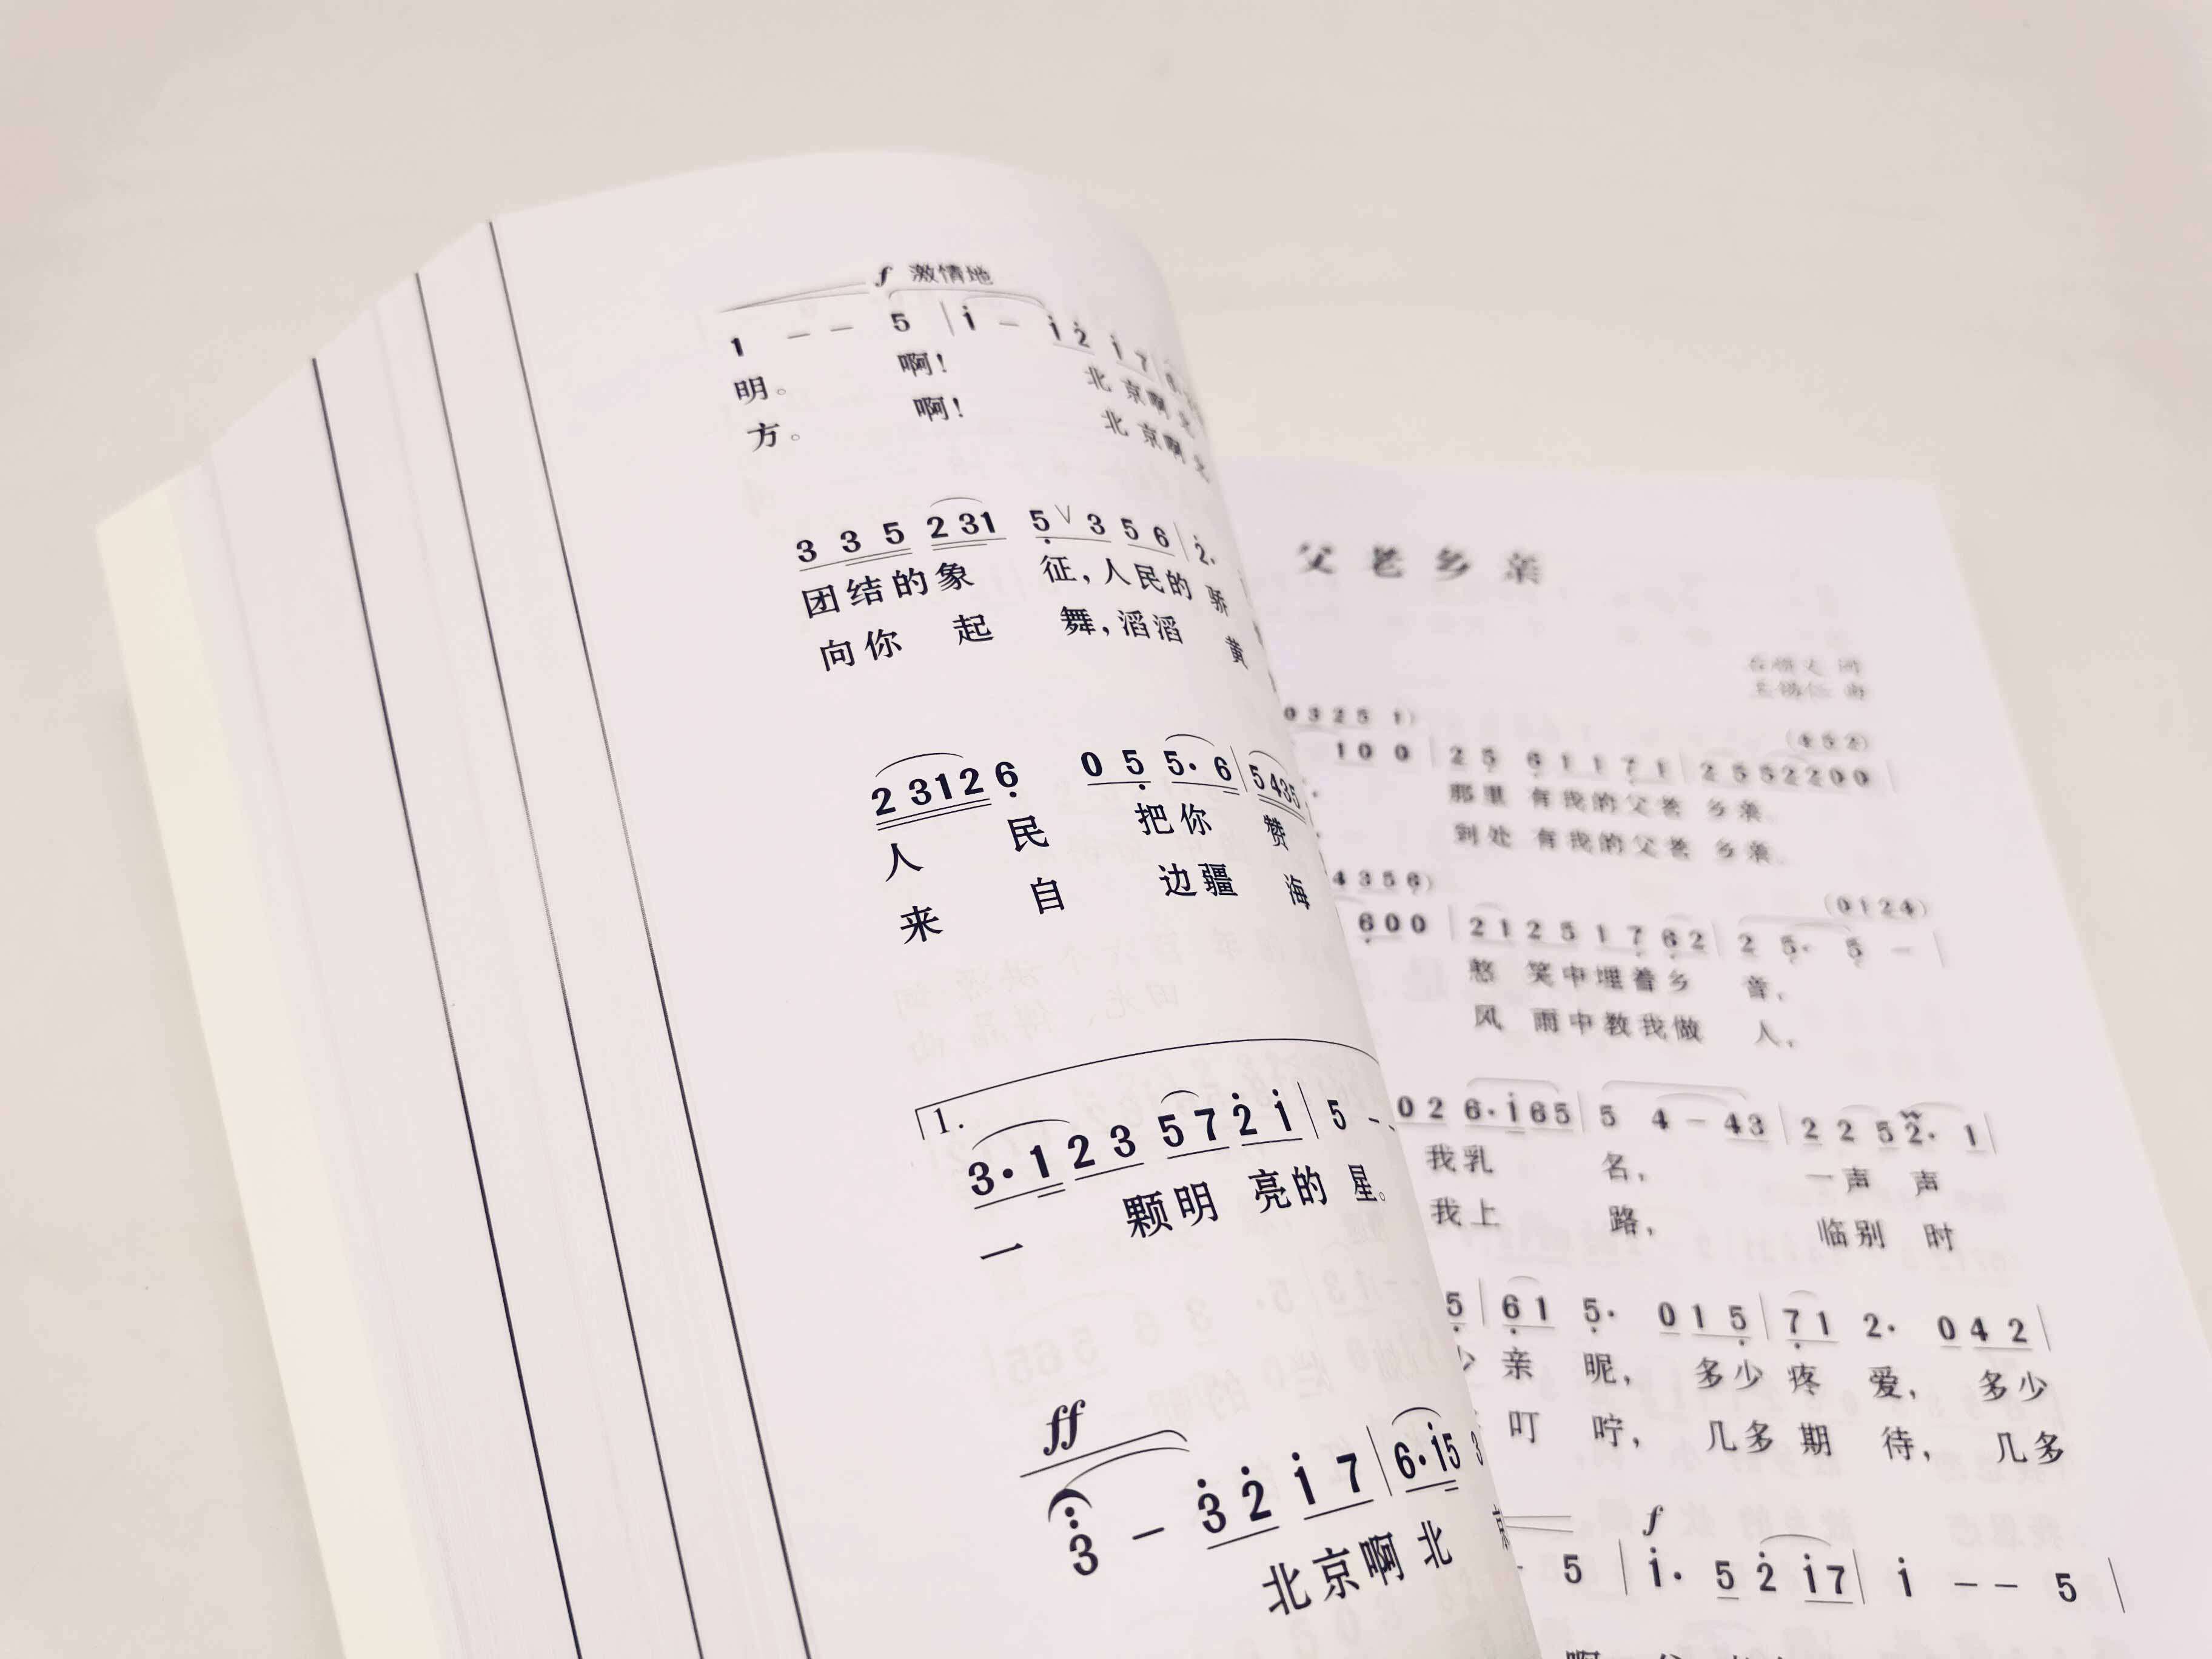 f 激情地
1 - - 5 | i - i 2 i 7
明。 啊! 北 京啊
方。 啊! 北 京啊
3 3 5 2 3 1 5 V 3 5 6 | 2.
团结的象 征,人民的 骄
向你 起 舞,滔滔 黄
2 3 1 2 6 0 5 5. 6 | 5 4 3 5
人 民 把你 赞
来 自 边疆 海
1.
3. 1 2 3 5 7 2 i | 5 -
一 颗明 亮的 星。
ff
3 - 3 2 i 7 | 6. i 5 3
北京啊 北 京
父老乡亲
0 3 2 5 1)
(4 5 2)
1 0 0 | 2 5 6 1 1 7 1 | 2 5 5 2 2 0 0 |
那里 有我的父老 乡亲。
到处 有我的父老 乡亲。
4 3 5 6)
(0 1 2 4)
6 0 0 | 2 1 2 5 1 7 6 2 | 2 5. 5 - |
憨 笑中埋着乡 音,
风 雨中教我做 人,
0 2 6. i 6 5 | 5 4 - 4 3 | 2 2 5 2. 1 |
我乳 名, 一声 声
我上 路, 临别 时
5 | 6 1 5. 0 1 5 | 7 1 2. 0 4 2 |
少 亲 昵, 多少 疼 爱, 多少
叮 咛, 几多 期 待, 几多
f
- 5 | i. 5 2 i 7 | i - - 5 |
啊